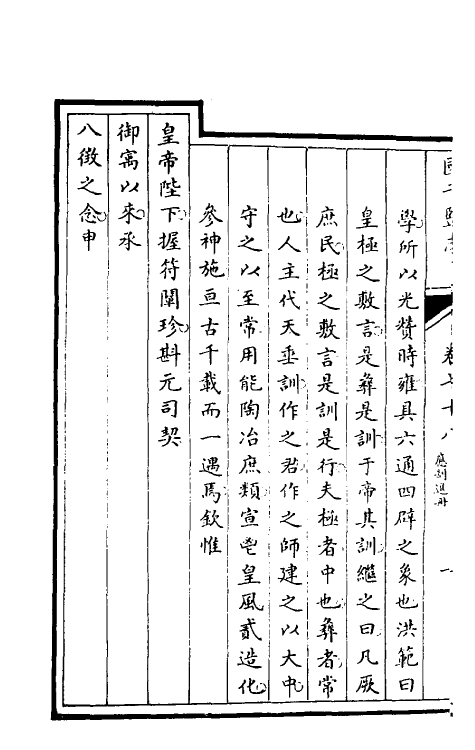 學所以光贊時雍具六通四辟之象也洪範曰
皇極之敷言是彝是訓于帝其訓繼之曰凡厥
庶民極之敷言是訓是行夫極者中也彝者常
也人主代天垂訓作之君作之師建之以大中
守之以至常用能陶冶庶類宣鬯皇風貳造化
參神施亘古千載而一遇焉欽惟
皇帝陛下握符闡珍斟元司契
御寓以來承
八徵之念申